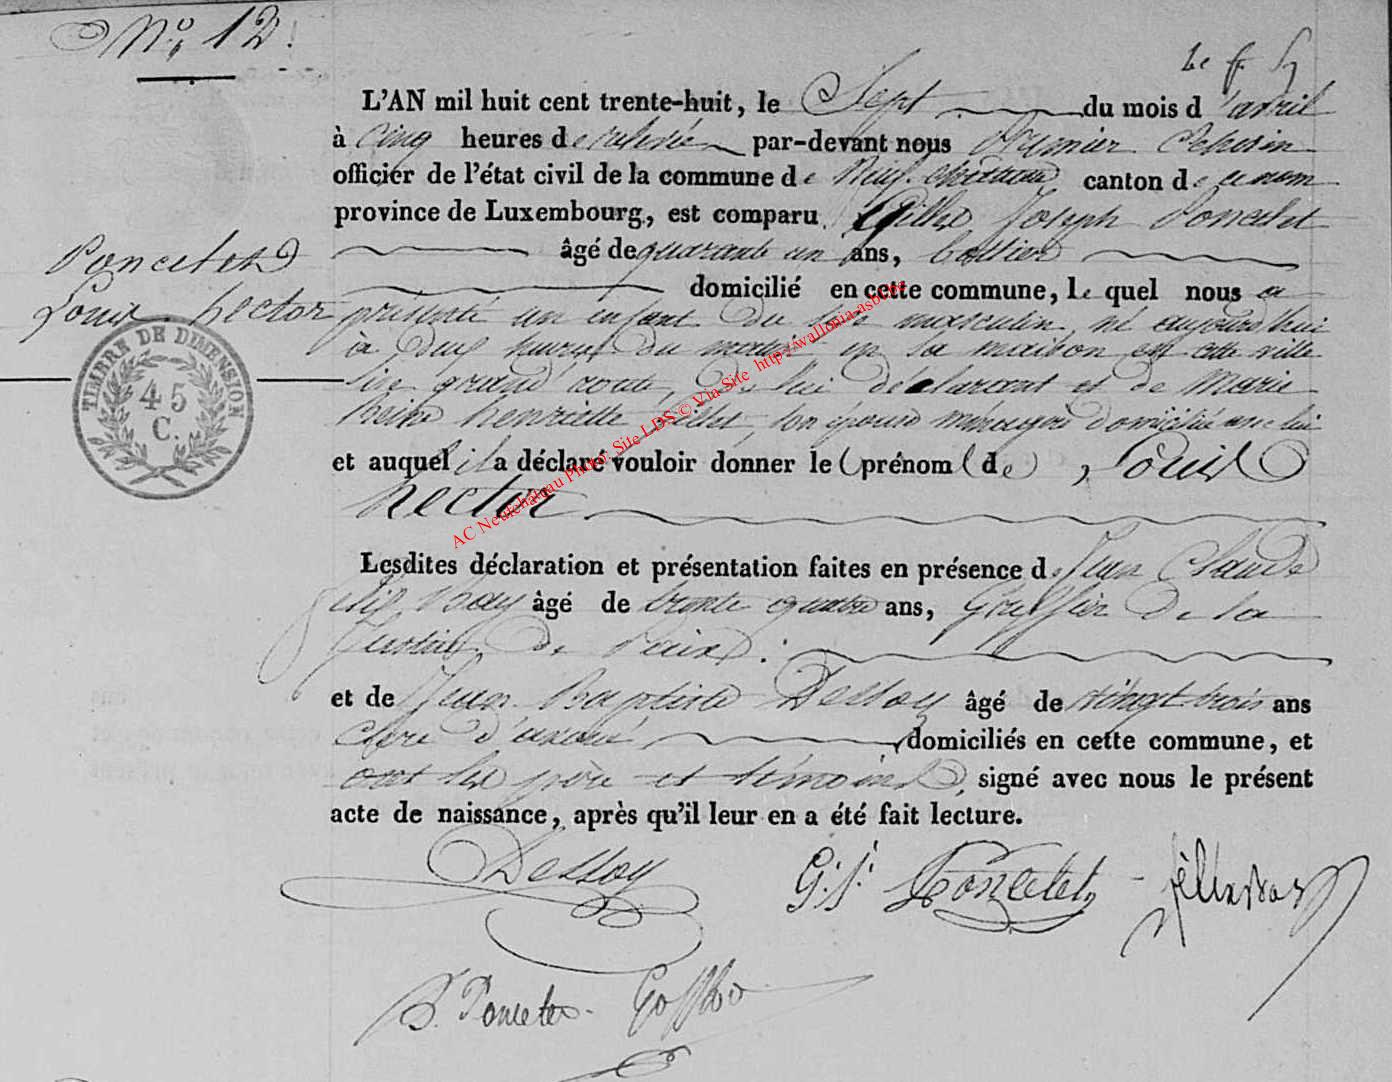 N° 12.
L'AN mil huit cent trente-huit, le Sept du mois d'avril
à cinq heures de relevée par-devant nous premier Echevin
officier de l'état civil de la commune de Neufchâteau canton de ce nom
province de Luxembourg, est comparu Joseph Poncelet
âgé de quarante un ans,
domicilié en cette commune, le quel nous a
Poncelet
Louis hector
présenté un enfant du sexe masculin, né aujourd'hui
à deux heures du matin en sa maison en cette ville
de lui déclarant et de Marie
henriette son épouse ménagère domiciliée avec lui
et auquel il a déclaré vouloir donner le prénom de Louis
hector
TIMBRE DE DIMENSION
45
C.
Lesdites déclaration et présentation faites en présence de Jean Claude
âgé de trente quatre ans, Greffier de la
Justice de Paix.
et de Jean Baptiste Dessoy âgé de vingt trois ans
Clerc d'avoué domiciliés en cette commune, et
ont les père et témoins, signé avec nous le présent
acte de naissance, après qu'il leur en a été fait lecture.
Dessoy G. J. Poncelet
Poncelet
AC Neufchâteau Photo: Site LDS © Via Site http://wallonia-asbl.be